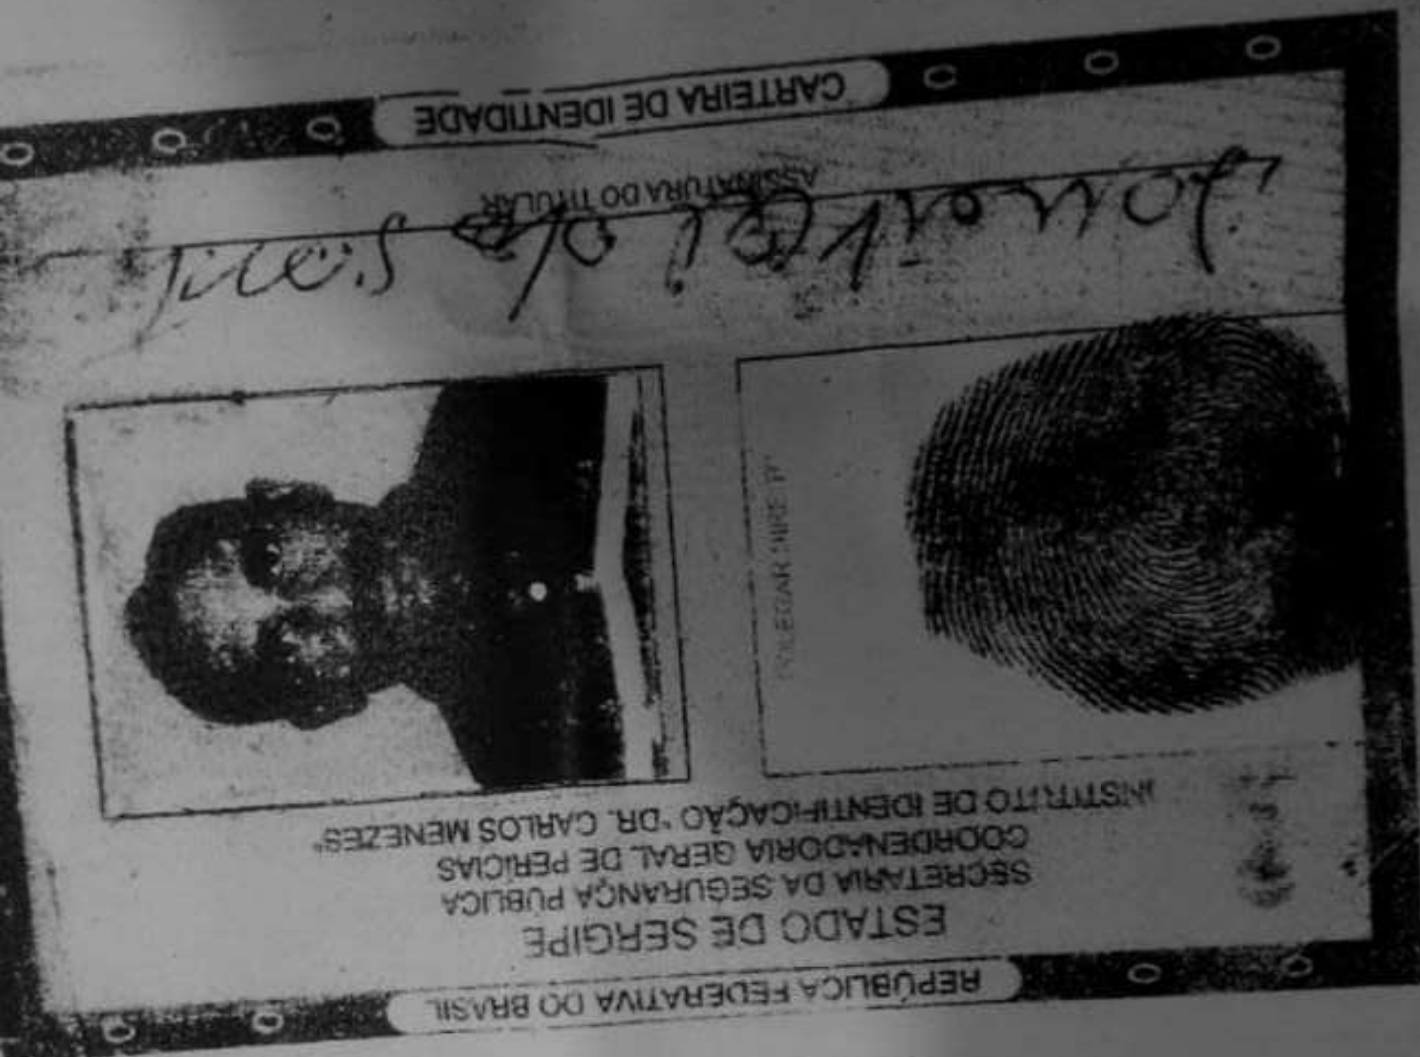 REPÚBLICA FEDERATIVA DO BRASIL
ESTADO DE SERGIPE
SECRETARIA DA SEGURANÇA PÚBLICA
COORDENADORIA GERAL DE PERÍCIAS
INSTITUTO DE IDENTIFICAÇÃO "DR. CARLOS MENEZES"
POLEGAR DIREITO
ASSINATURA DO TITULAR
CARTEIRA DE IDENTIDADE